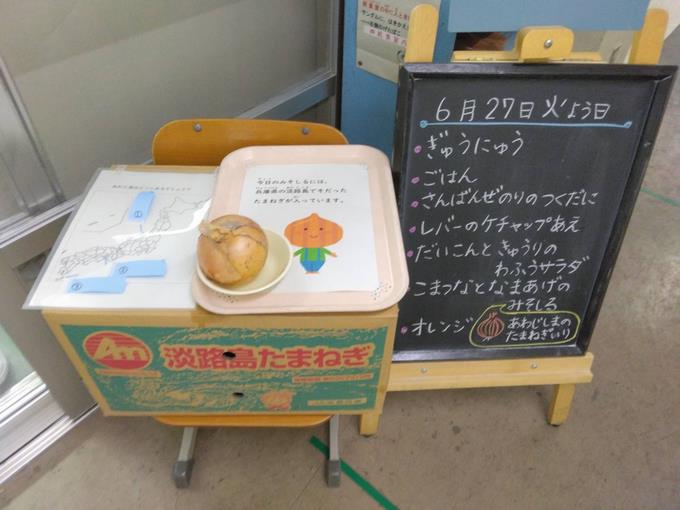 6月27日火よう日
・ぎゅうにゅう
・ごはん
・さんばんぜのりのつくだに
・レバーのケチャップあえ
・だいこんときゅうりの
わふうサラダ
・こまつなとなまあげの
みそしる
・オレンジ
あわじしまの
たまねぎいり
今日のみそしるには、
兵庫県の淡路島でそだった
たまねぎが入っています。
①
②
③
淡路島たまねぎ